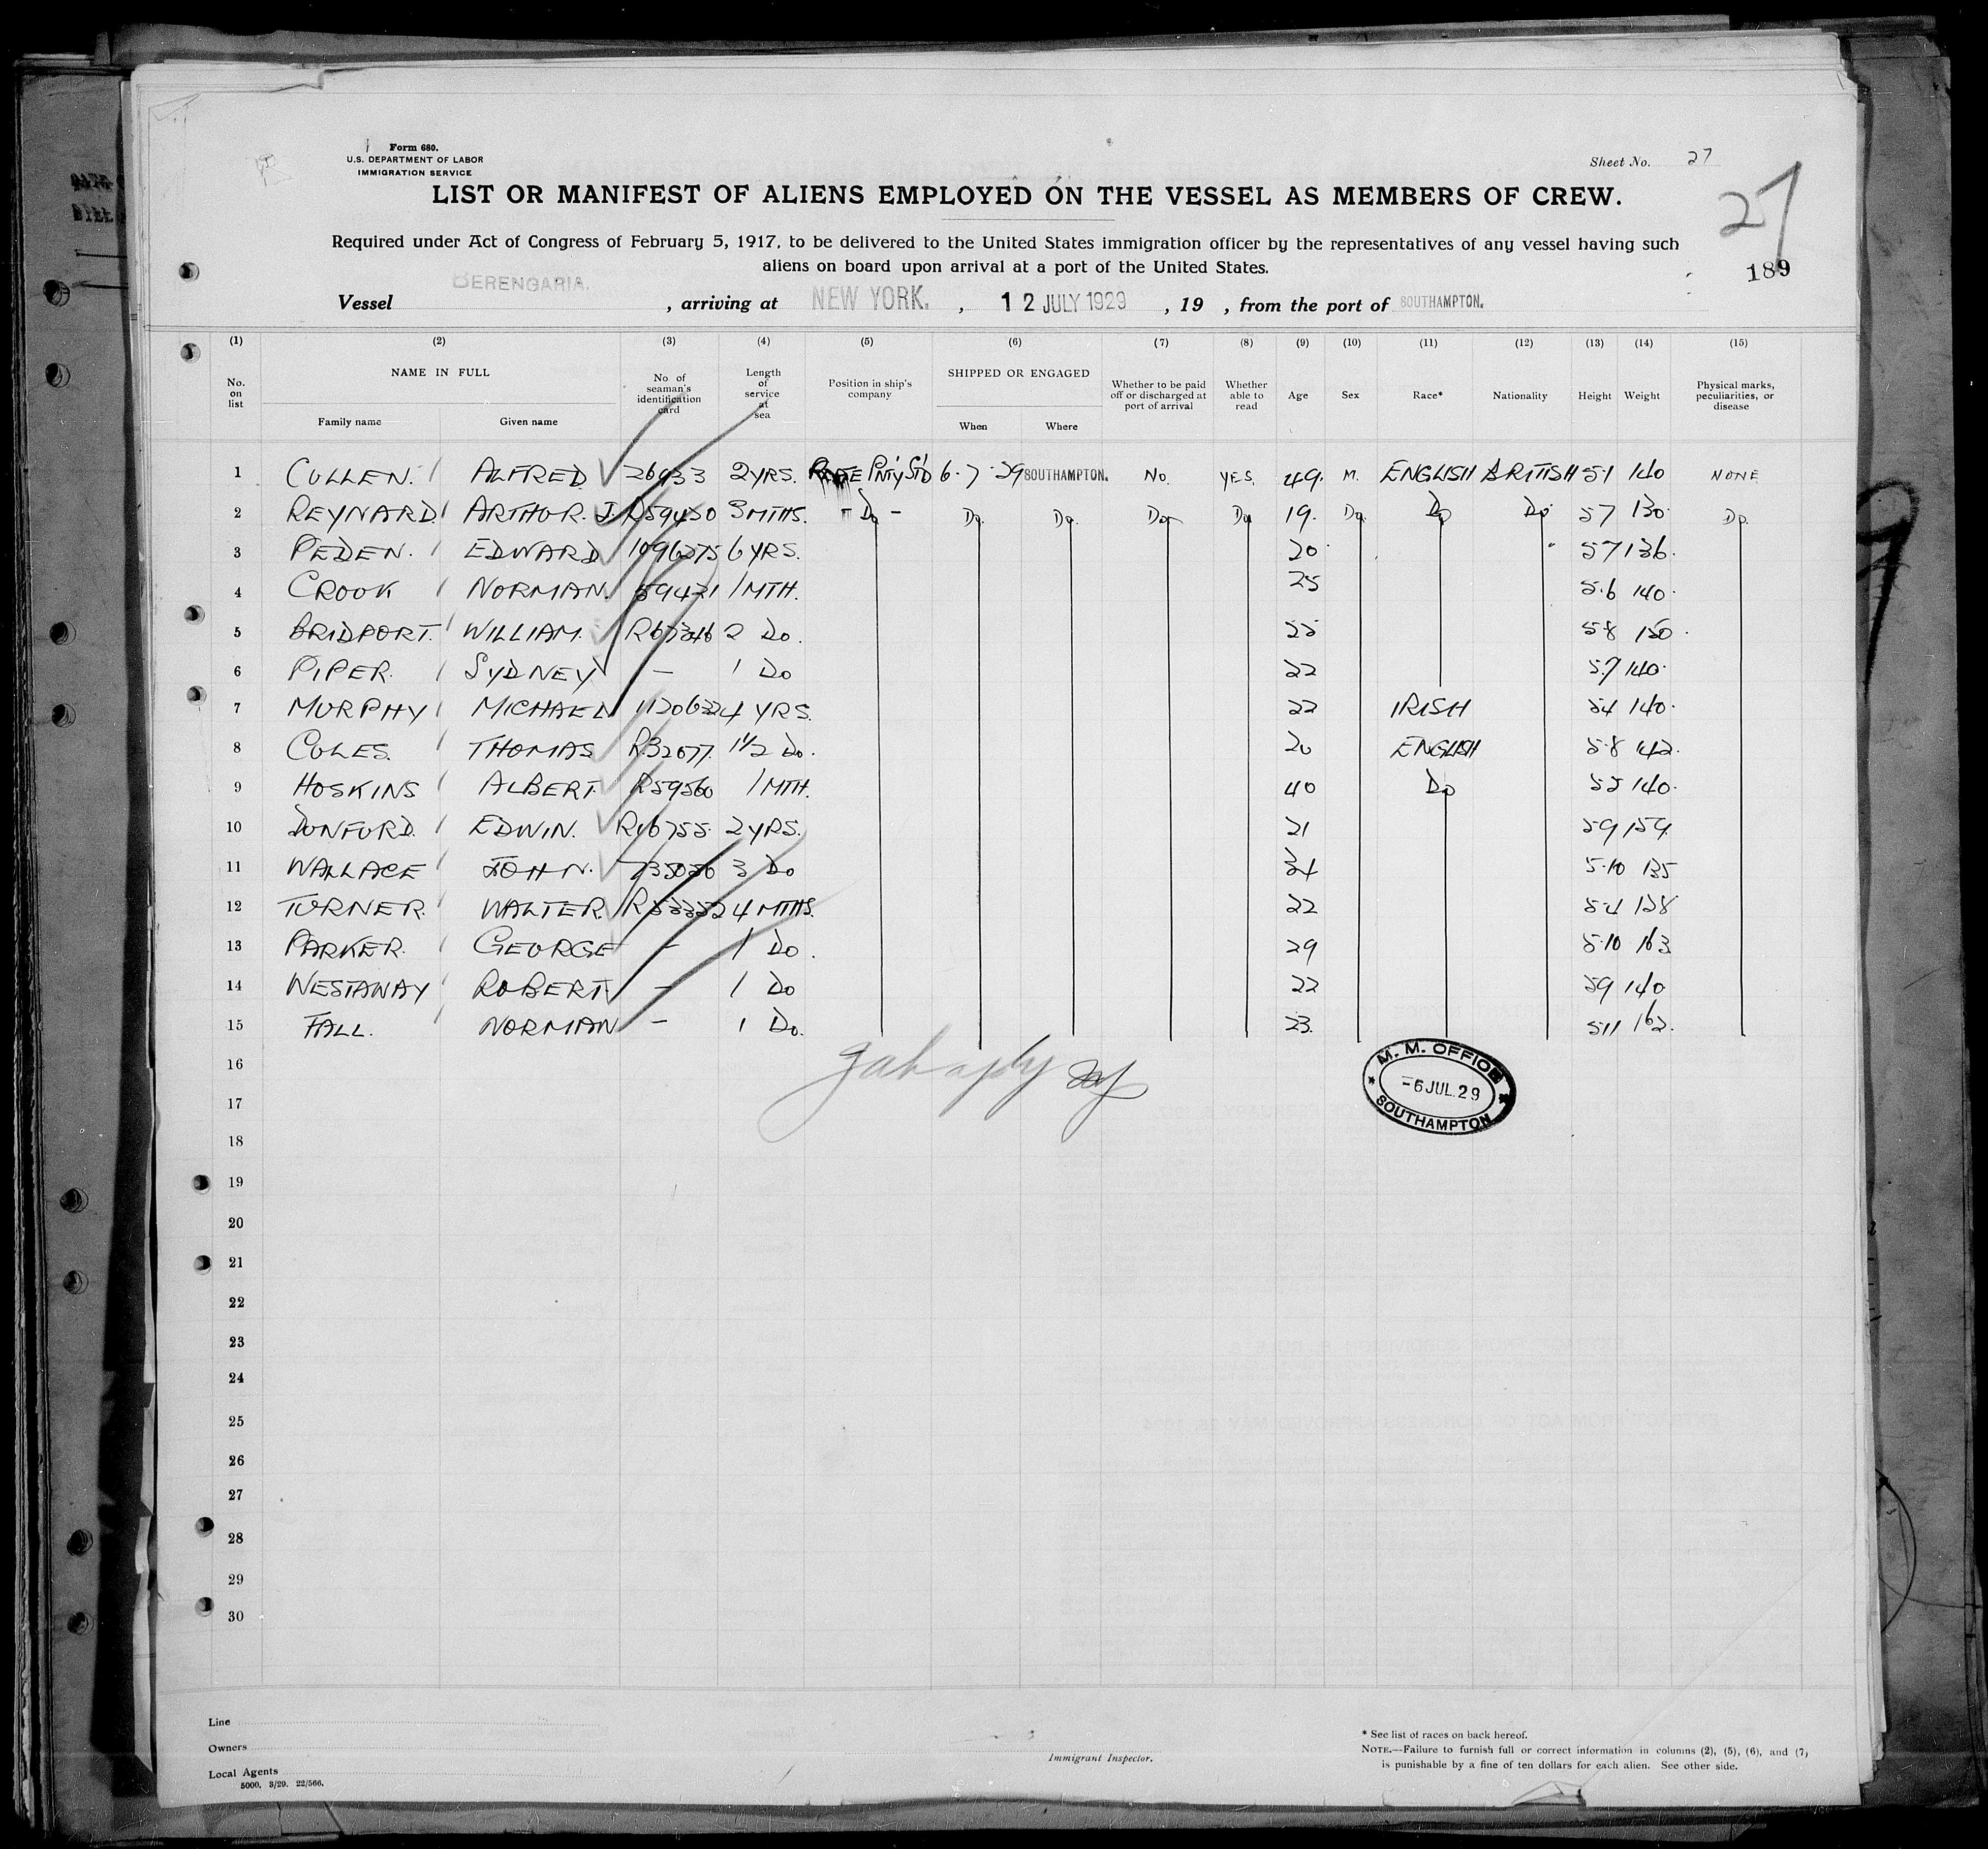 Form 680.
U.S. DEPARTMENT OF LABOR
IMMIGRATION SERVICE
Sheet No. 27
27
LIST OR MANIFEST OF ALIENS EMPLOYED ON THE VESSEL AS MEMBERS OF CREW.
Required under Act of Congress of February 5, 1917, to be delivered to the United States immigration officer by the representatives of any vessel having such
aliens on board upon arrival at a port of the United States.
189
Vessel BERENGARIA. , arriving at NEW YORK. , 12 JULY 1929 , 19 , from the port of SOUTHAMPTON.
(1) (2) (3) (4) (5) (6) (7) (8) (9) (10) (11) (12) (13) (14) (15)
No. on list NAME IN FULL No. of seaman's identification card Length of service at sea Position in ship's company SHIPPED OR ENGAGED Whether to be paid off or discharged at port of arrival Whether able to read Age Sex Race* Nationality Height Weight Physical marks, peculiarities, or disease
Family name Given name When Where
1 CULLEN. ALFRED. 26933 2 YRS. P'NT'Y ST'D 6.7.29 SOUTHAMPTON. No. YES. 49. M. ENGLISH BRITISH 51 140 NONE
2 REYNARD. ARTHUR. J. R59450 3 MTHS. - Do - Do. Do. Do Do 19. Do. Do Do. 57 130. Do.
3 PEDEN. EDWARD 1096275 6 YRS. 20 57 136.
4 CROOK NORMAN. 59431 1 MTH. 25 5.6 140.
5 BRIDPORT. WILLIAM. 2 Do. 25 58 150.
6 PIPER. SYDNEY - 1 Do 22 5.7 140.
7 MURPHY MICHAEL 4 YRS. 22 IRISH 54 140.
8 COLES. THOMAS R32077. 1½ Do. 20 ENGLISH 5.8 142.
9 HOSKINS ALBERT. R59560 1 MTH. 40 Do 55 140.
10 DUNFORD. EDWIN. R16755. 2 YRS. 21 59 159.
11 WALLACE JOHN. 3 Do 34 5.10 135
12 TURNER. WALTER 4 MTHS. 22 54 128
13 PARKER. GEORGE - 1 Do. 29 5.10 163
14 WESTAWAY ROBERT - 1 Do 22 59 140
15 FALL. NORMAN - 1 Do. 23. 511 162.
16
M. M. OFFICE
-6 JUL. 29
SOUTHAMPTON
17
18
19
20
21
22
23
24
25
26
27
28
29
30
Line
Owners
Local Agents
5000. 3/29. 22/566.
Immigrant Inspector.
* See list of races on back hereof.
NOTE.—Failure to furnish full or correct information in columns (2), (5), (6), and (7),
is punishable by a fine of ten dollars for each alien. See other side.